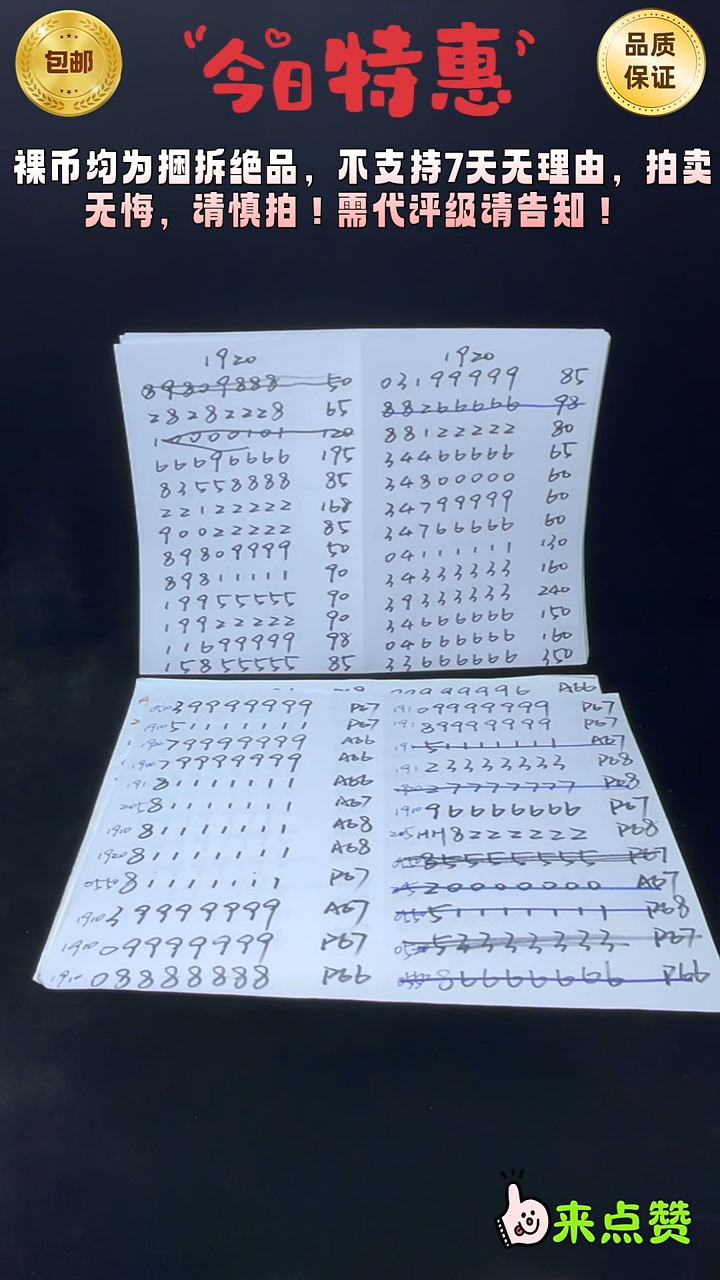 包邮
"今日特惠"
品质
保证
裸币均为捆拆绝品，不支持7天无理由，拍卖
无悔，请慎拍！需代评级请告知！
1920
89809888 50
28282228 65
10000101 120
66696666 195
83558888 85
22122222 168
90022222 85
89809999 50
89811111 90
19955555 90
19922222 90
11699999 98
15855555 85
1920
03199999 85
88266666 98
88122222 80
34466666 65
34800000 60
34799999 60
34766666 60
04111111 130
34333333 160
39333333 240
34666666 150
04666666 160
33666666 350
39999999 P67
1920 51111111 P67
1980 79999999 A66
1920 79999999 A66
191 81111111 A66
205 81111111 A67
1910 81111111 A68
1920 81111111 A68
0550 81111111 P67
1910 39999999 A67
1910 09999999 P67
1910 08888888 P66
999996 A66
191 09999999 P67
191 89999999 P67
191 51111111 A67
191 23333333 P68
27777777 P68
1910 96666666 P67
205 HH8222222 P68
85555555 P67
205 20000000 A67
055 51111111 P68
055 53333333 P67
86666666 P66
来点赞